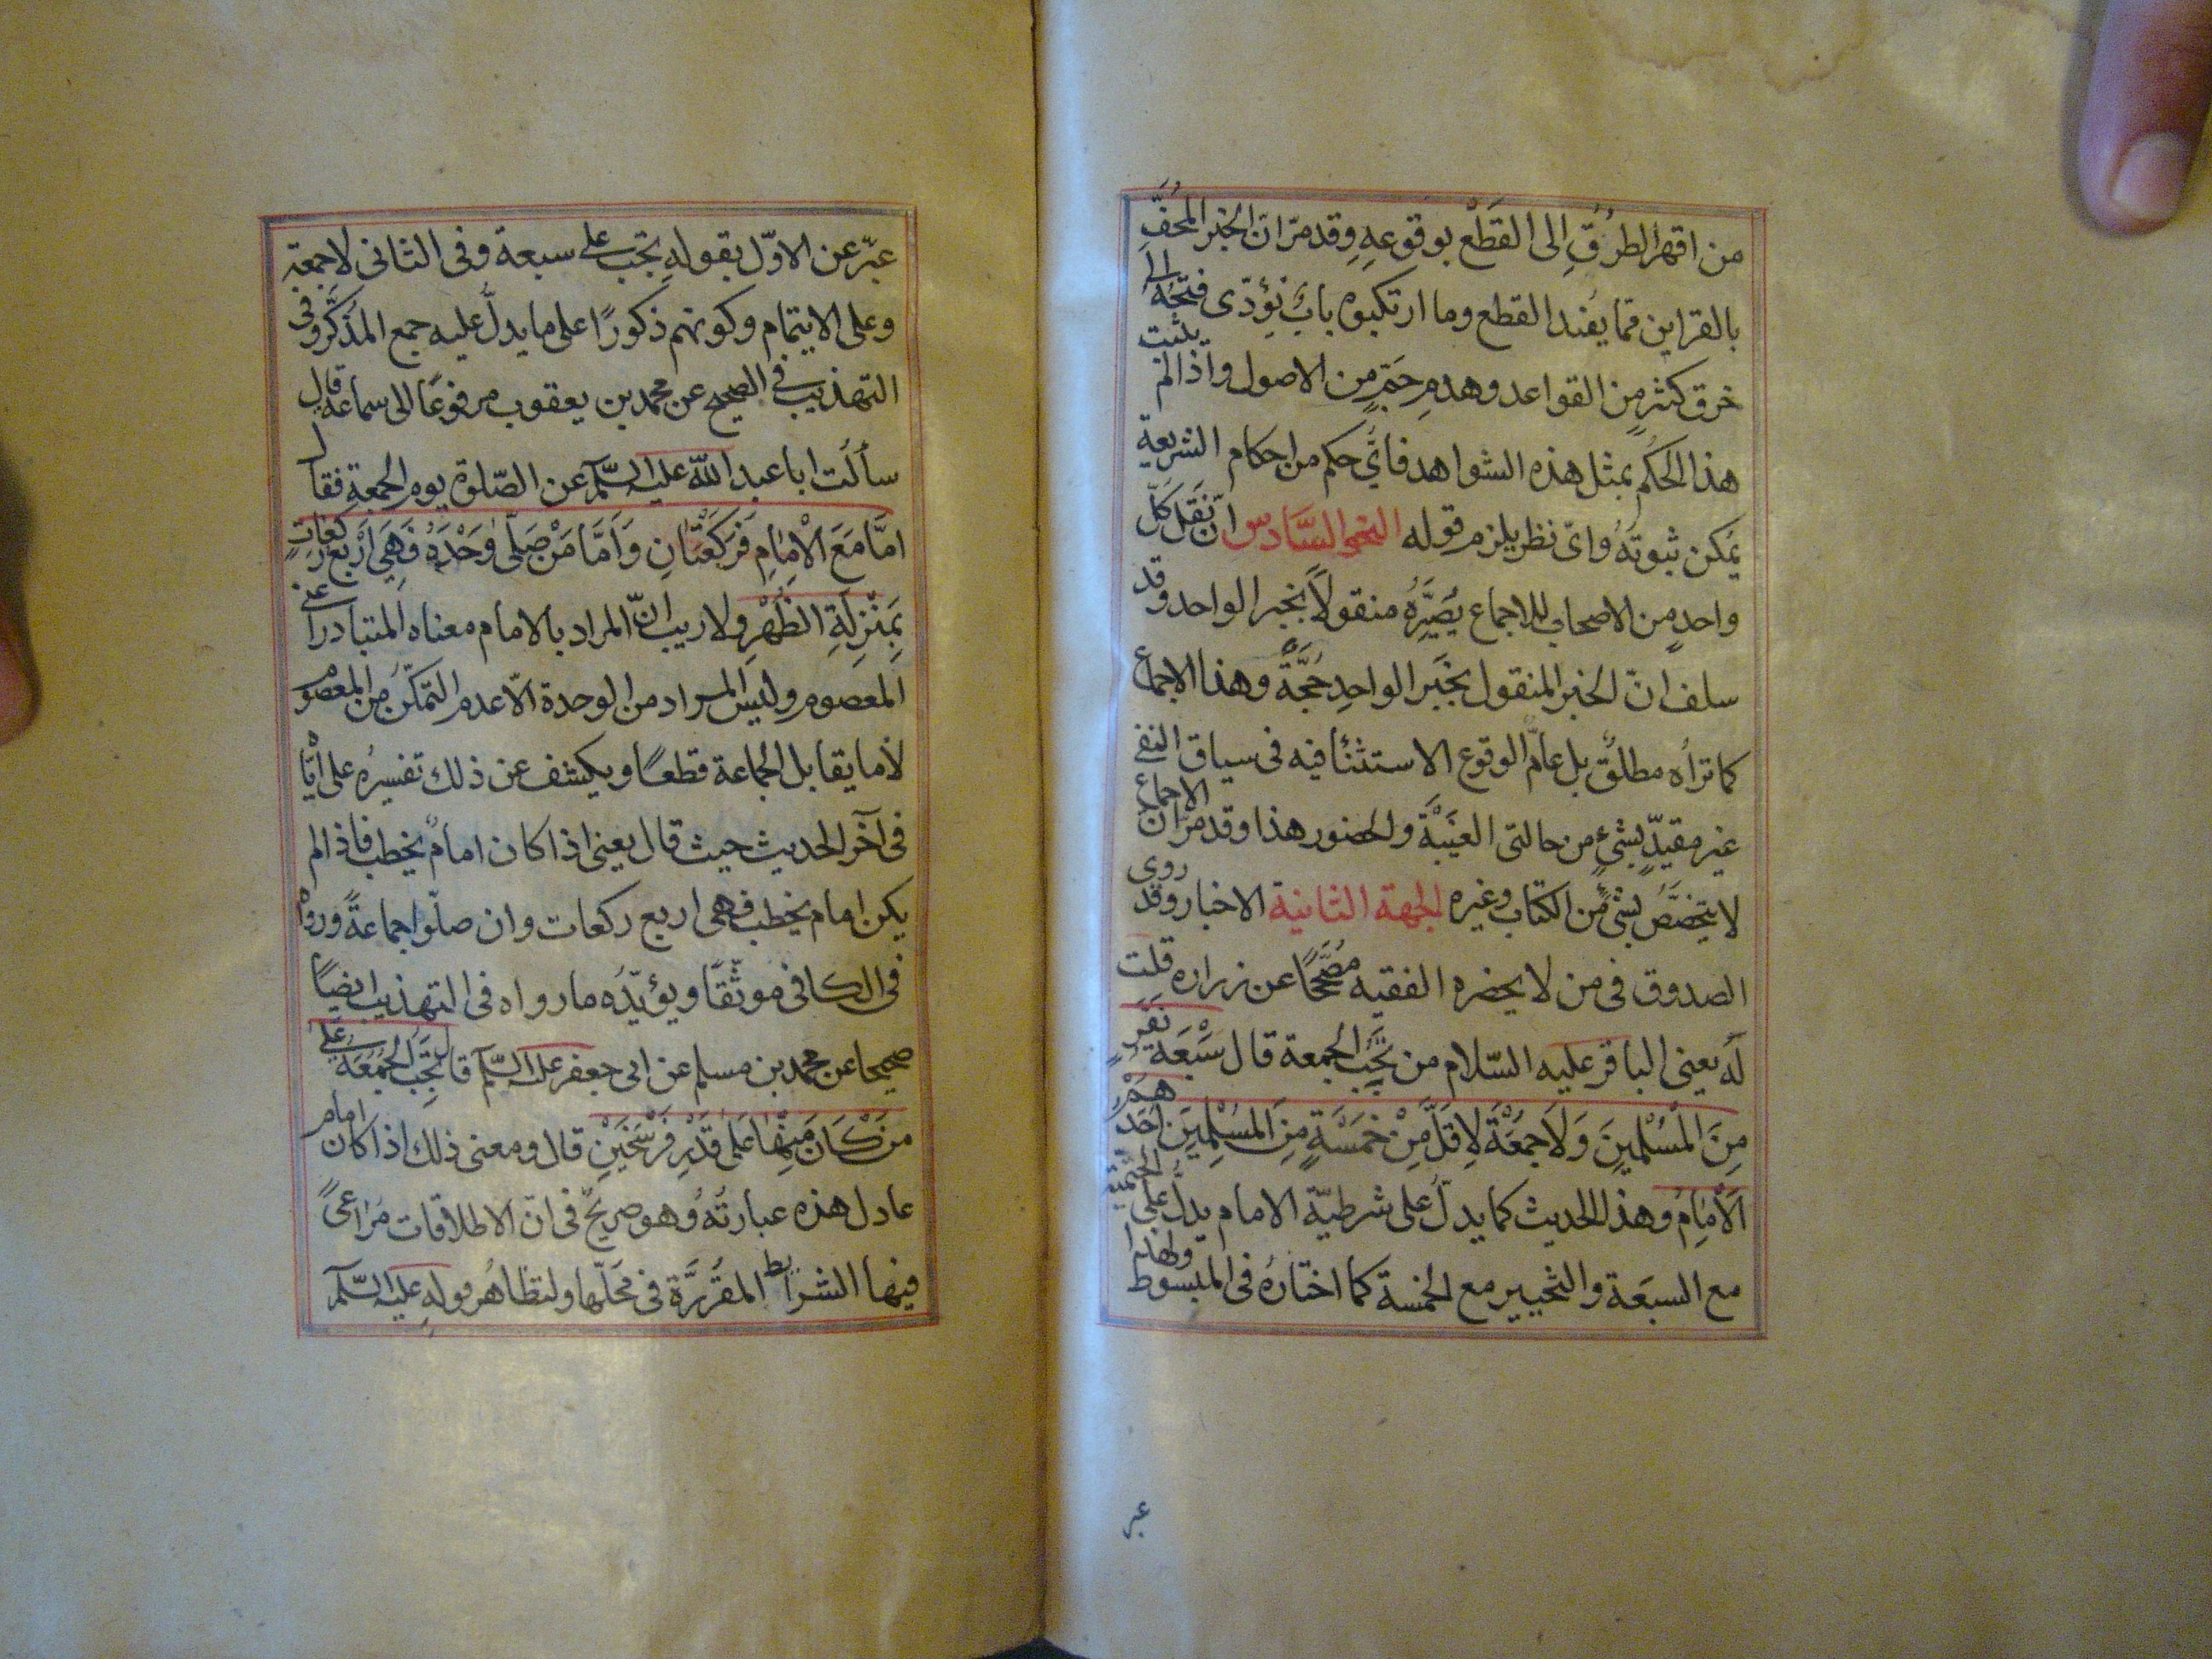 من اقهر الطرُقِ الى القَطْع بوقوعهِ وقد مرّ ان الخبر المحُفَّ
بالقراين فما يفيد القطع وما ارتكبوه بابٌ يؤدّى فتحُهُ الى
خرق كثيرٍ من القواعد وهدمِ حَتمٍ من الاصول واذا لم يثبت
هذا الحكم بمثل هذه الشواهد فاىُّ حكم من احكام الشريعة
يمكن ثبوتهُ واىّ نظر يلزم قوله النحو السَّادس انّ نَقْلَ كلّ
واحدٍ من الاصحاب للاجماع يُصَيِّرُهُ منقولاً بخبر الواحد وقد
سلف انّ الخبر المنقول بخَبر الواحدِ حُجَّةٌ وهذا الاجماع
كما تراه مطلقٌ بل عامّ الوقوع الاستثنا فيه فى سياق النفى
غير مقيدٍّ بشئٍ من حالتى الغَيْبَة والحضور هذا وقد مرّ ان الاجماع
لا يتخصَّصُ بشئٍ من الكتاب وغيره الجهة الثانية الاخبار وقد روى
الصدوق فى من لا يحضره الفقيه مُصَحَّحًا عن زراره قلت
لَه يعنى الباقر عليه السّلام من تَجِبُ الجمعة قال سَبْعَة نَفَرٍ
مِنَ الْمُسْلِمِينَ وَلَا جمُعَةَ لِاقَلَّ مِنْ خمَسَةٍ مِنَ المُسْلِمِينَ اَحَدُهُمْ
الْاِمامُ وهذا الحديث كما يدلّ على شرطيّة الامام يدلّ على الحتميّة
مع السبعَة والتخيير مع الخمسة كما اختارهُ فى المبسوط ولهذا
عبر
عبّر عن الاوّل بقولهِ تجب على سبعة وفى الثانى لا جمعة
وعلى الايتمام وكونهم ذكورًا على ما يدلّ عليه جمع المذكّر وفى
التهذيب فى الصحيح عن محمد بن يعقوب مرفوعًا الى سماعة قال
سألت ابا عبد اللّه عليه السّلم عن الصّلوة يوم الجمعةِ فقال
امَّا مَعَ الْاِمامِ فَرَكْعَتانِ وَاَمَّا مَنْ صَلّى وَحْدَهُ فَهِىَ اَرْبَع رَكَعاتٍ
بِمَنْزِلَةِ الظُّهْرِ ولا ريب انّ المراد بالامام معناه المتبادر اعنى
المعصوم وليس المراد من الوحدة الّا عدم التمكّن من المعصوم
لا ما يقابل الجماعة قطعًا ويكشف عن ذلك تفسيرهُ على ايّا
فى آخر الحديث حيث قال يعنى اذا كان امامٌ يخطب فاذا لم
يكن امام يخطب فهى اربع ركعات وان صلّوا جماعةً ورواه
فى الكافى موثّقًا ويؤيّدهُ ما رواه فى التهذيب ايضًا
صحيحا عن محمد بن مسلم عن ابى جعفر عليه السّلم قال تَجِبُ الجُمُعَةُ عَلى
مَنْ كَانَ مِنْها عَلى قَدْرِ فَرْسَخَيْنِ قال ومعنى ذلك اذا كان امام
عادل هذه عبارتُهُ وهو صريحٌ فى انّ الاطلاقات مُراعىً
فيها الشرايط المقرَّرَة فى محَلّها ولتظاهُر قولهِ عليه السّلم